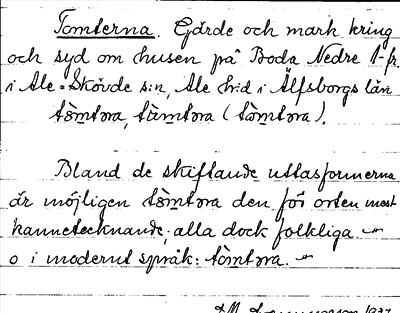 Tomterna. Gärde och mark kring
och syd om husen på Boda Nedre 1-fr.
i Ale-Skövde s:n, Ale h:d i Älfsborgs län
tömtora, tämtora (tömtora).
Bland de skiftande uttalsformerna
är möjligen tömtora den för orten mest
kännetecknande; alla dock folkliga
o i modernt språk: tömtora.